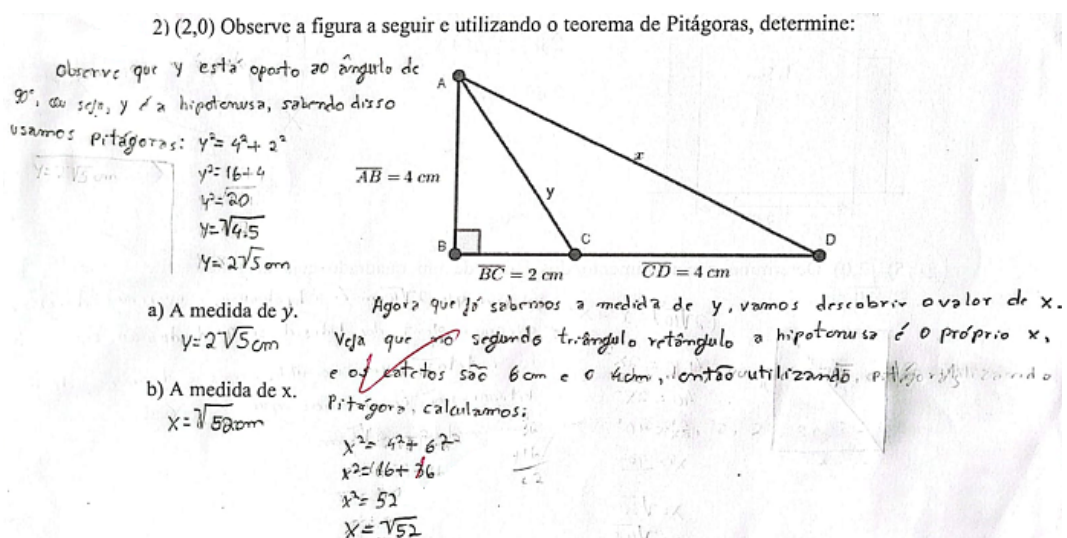 2) (2,0) Observe a figura a seguir e utilizando o teorema de Pitágoras, determine:
Observe que y está oposto ao ângulo de
90°, ou seja, y é a hipotenusa, sabendo disso
usamos Pitágoras: y²= 4²+ 2²
y²= 16+4
y²= 20
y=√4.5
y= 2√5 cm
A
x
AB = 4 cm
y
B
C
D
BC = 2 cm
CD = 4 cm
a) A medida de y.
y=2√5cm
b) A medida de x.
x=√52cm
Agora que já sabemos a medida de y, vamos descobrir o valor de x.
Veja que no segundo triângulo retângulo a hipotenusa é o próprio x,
e os catetos são 6cm e 4cm, então utilizando
Pitágora, calculamos:
x²= 4²+ 6²
x²= 16+ 36
x²= 52
x= √52